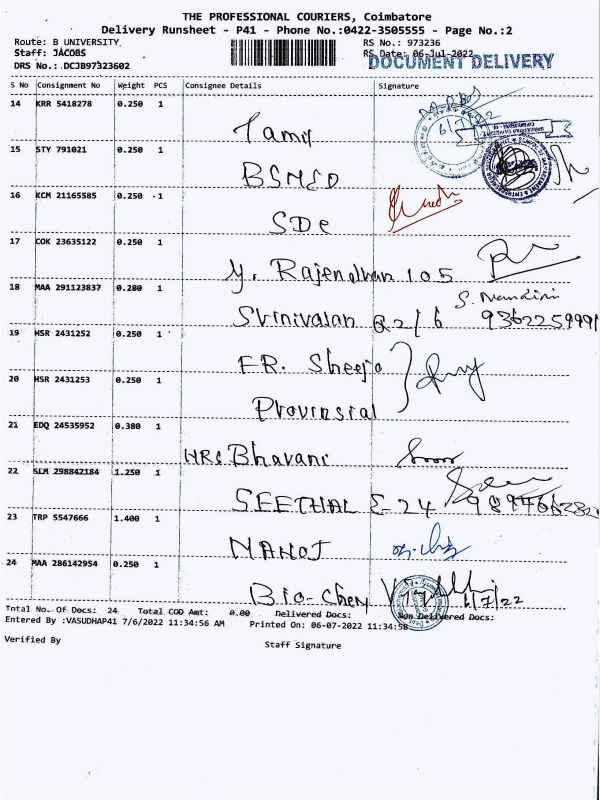 THE PROFESSIONAL COURIERS, Coimbatore
Delivery Runsheet - P41 - Phone No.:0422-3505555 - Page No.:2
Route: B UNIVERSITY,
RS No.: 973236
Staff: JACOBS
RS Date: 06-Jul-2022
DRS No.: DCJB97323602
DOCUMENT DELIVERY
S No Consignment No Weight PCS Consignee Details Signature
14 KRR 5418278 0.250 1
Tamil
6/7/22
15 STY 791021 0.250 1
BSMED
16 KCM 21165585 0.250 1
SDE
17 COK 23635122 0.250 1
Y. Rajendhran 105
18 MAA 291123837 0.280 1
S. Nandini
Srinivalan Q2/6 9362259991
19 HSR 2431252 0.250 1
FR. Sheeja
20 HSR 2431253 0.250 1
Provinsial
21 EDQ 24535952 0.380 1
MRS Bhavani
22 SLM 298842184 1.250 1
SEETHAL E-24
23 TRP 5547666 1.400 1
MANOJ
24 MAA 286142954 0.250 1
Bio-Chem 6/7/22
Total No. Of Docs: 24 Total COD Amt: 0.00 Delivered Docs: Non Delivered Docs:
Entered By :VASUDHAP41 7/6/2022 11:34:56 AM Printed On: 06-07-2022 11:34:58
Verified By
Staff Signature